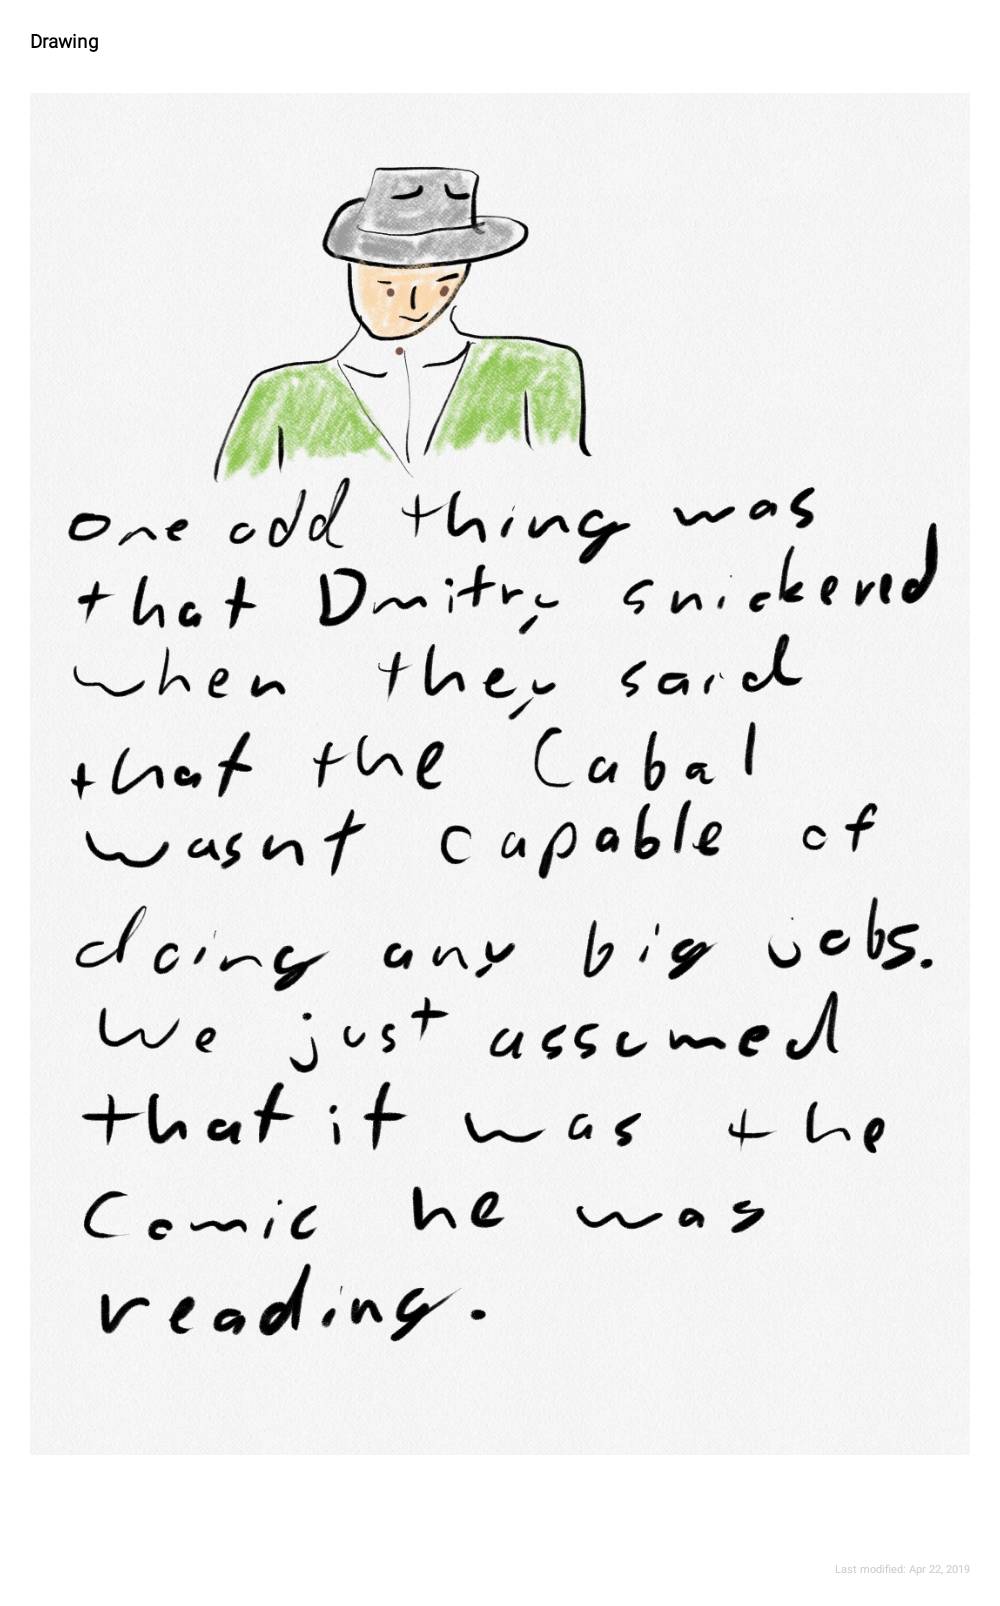 Drawing
One odd thing was
that Dmitry snickered
when they said
that the Cabal
wasnt capable of
doing any big jobs.
We just assumed
that it was the
Comic he was
reading.
Last modified: Apr 22, 2019